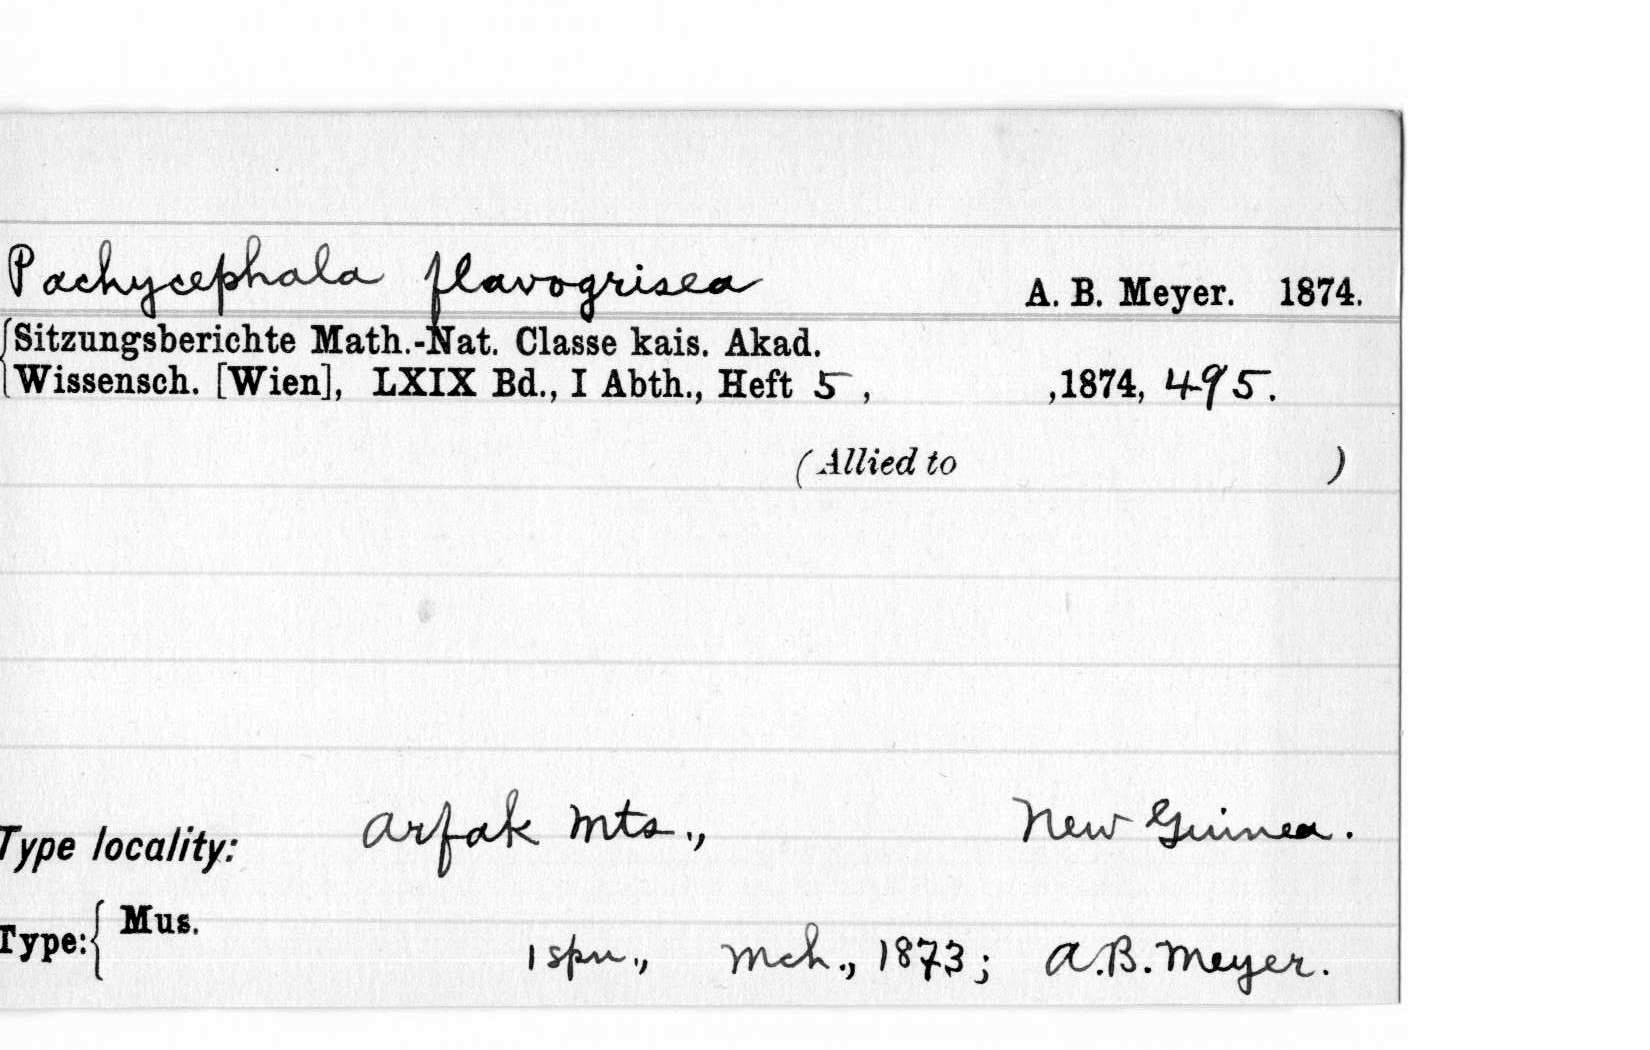 Pachycephala flavogrisea A. B. Meyer. 1874.
Sitzungsberichte Math.-Nat. Classe kais. Akad.
Wissensch. [Wien], LXIX Bd., I Abth., Heft 5 , ,1874, 495.
(Allied to )
Type locality: Arfak Mts., New Guinea.
Type: { Mus.
1 spn., Mch., 1873; A.B. Meyer.